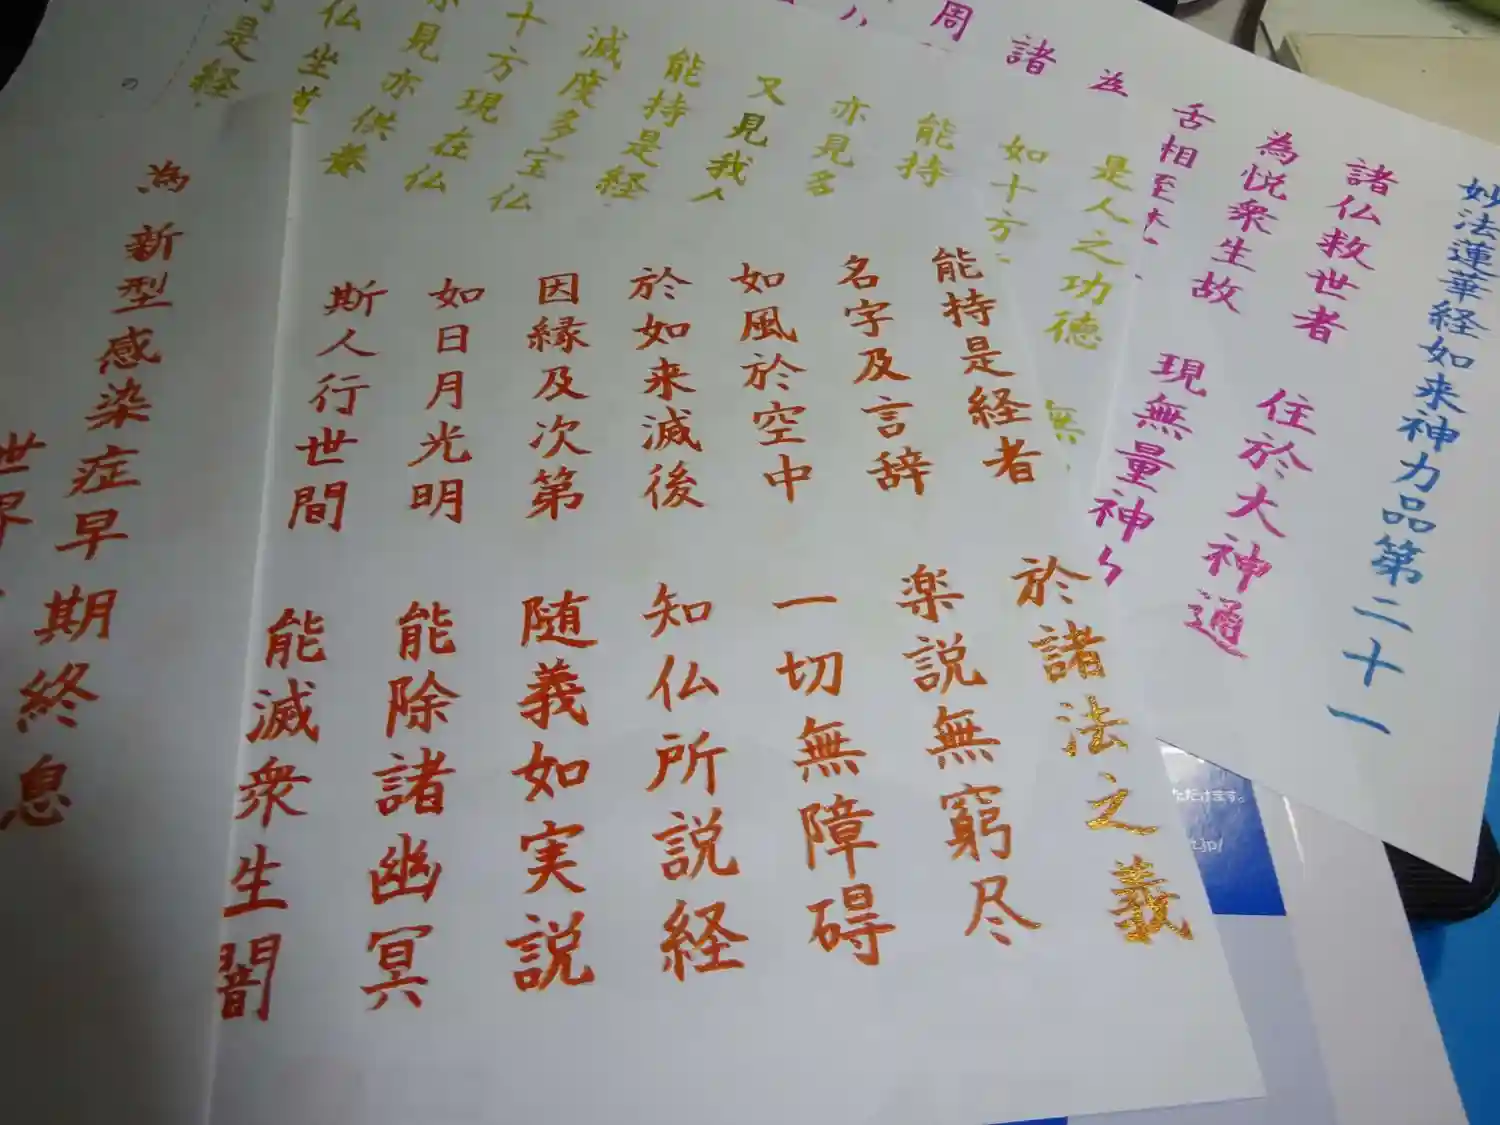 妙法蓮華経如来神力品第二十一
諸仏救世者 住於大神通
為悦衆生故 現無量神
舌相至
諸
周
是人之功徳 無
如十方
能持
亦見多
又見我
能持是経
滅度多宝仏
十方現在仏
亦見亦供養
仏坐道
是経
能持是経者 於諸法之義
名字及言辞 楽説無窮尽
如風於空中 一切無障碍
於如来滅後 知仏所説経
因縁及次第 随義如実説
如日月光明 能除諸幽冥
斯人行世間 能滅衆生闇
為新型感染症早期終息
世界
ただけます。
.jp/
の